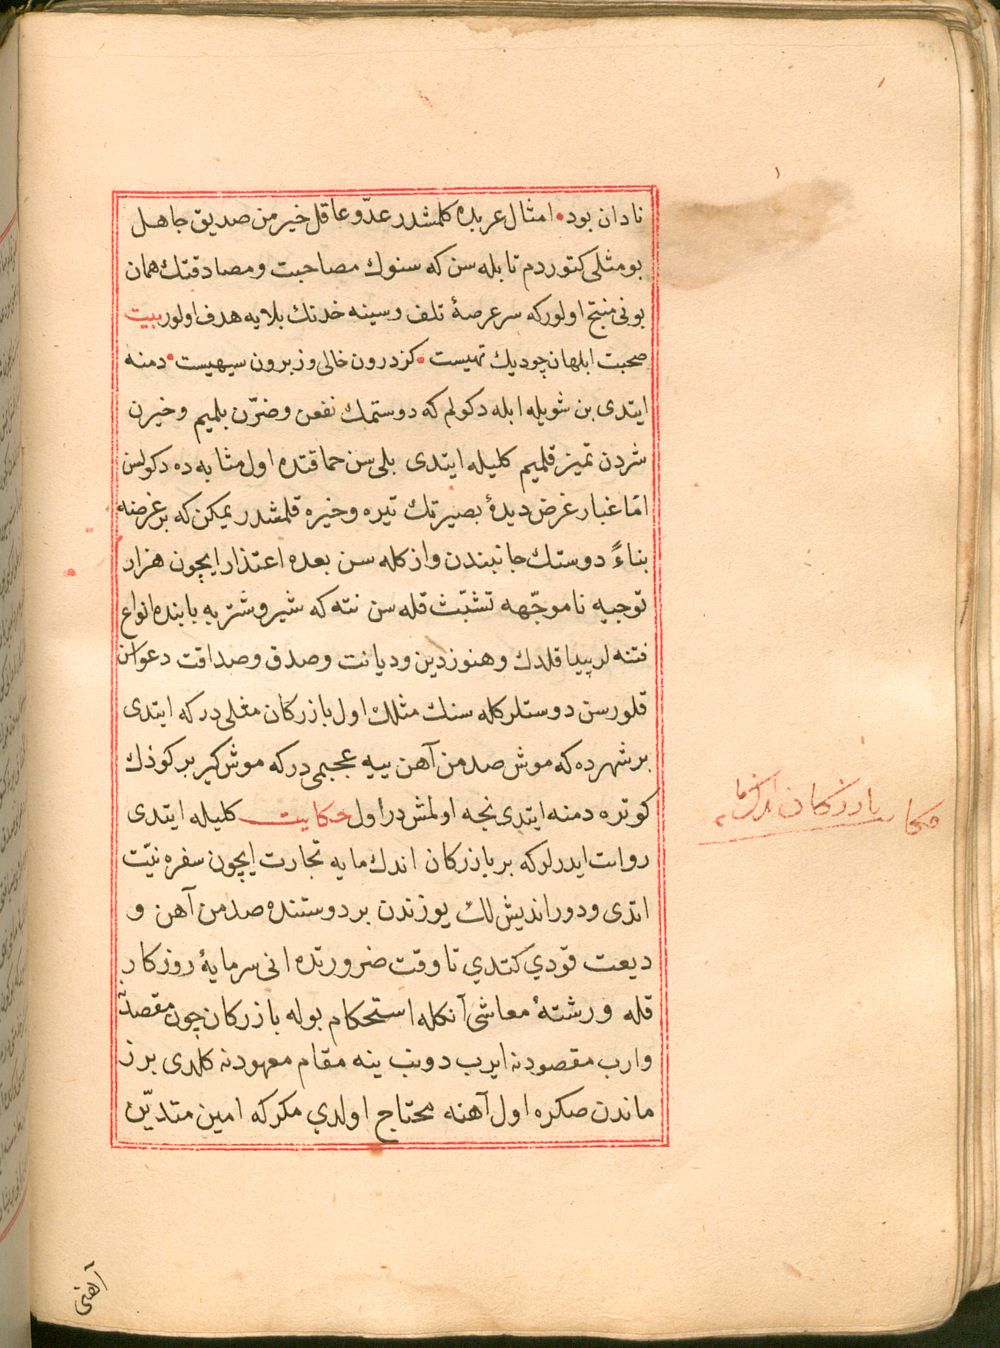 نادان بود • امثال عربده كلمشدر عدّو عاقل خير من صديق جاهل
بو مثلى كتوردم تا بله سن كه سنوك مصاحبت و مصادقتك همان
بونى منتج اولور كه سر عرصهٔ تلف و سينه خدنك بلايه هدف اولور بيت
صحبت ابلهان چو ديك تهيست • كز درون خالى وز برون سيهيست • دمنه
ايتدى بن شويله ابله دكولم كه دوستمك نفعن و ضرّن بلميم و خيرن
شردن تميز قلميم كليله ايتدى بلى سن حماقتده اول مثابه ده دكولسن
امّا غبار غرض ديدهٔ بصيرتك تيره و خيره قلمشدر يمكن كه بر غرضه
بناءً دوستك جانبندن واز كله سن بعده اعتذار ايچون هزار
توجيه ناموجّهه تشبّث قله سن نته كه شير و شتربه بابنده انواع
فتنه لر پيدا قلدك و هنوز دين و ديانت و صدق و صداقت دعواسن
قلورسن دوستلر كله سنك مثلك اول بازركان مثلى در كه ايتدى
بر شهرده كه موش صد من آهن ييه عجبمى در كه موش كير بر كودك
كوتره دمنه ايتدى نجه اولمش در اول حكايت كليله ايتدى
روايت ايدرلر كه بر بازركان اندك مايه تجارت ايچون سفره نيّت
اتدى و دور انديش لك يوزندن بر دوستنده صد من آهن و
ديعت قودي كتدي تا وقت ضرورتده انى سرمايهٔ روزكار
قله و رشتهٔ معاشى آنكله استحكام بوله بازركان چون مقصدنه
وارب مقصودنه ايرب دونب ينه مقام معهودنه كلدى بر ز
ماندن صكره اول آهنه محتاج اولدي مكر كه امين متديّن
حكايت بازركان اندك مايه
آهنى